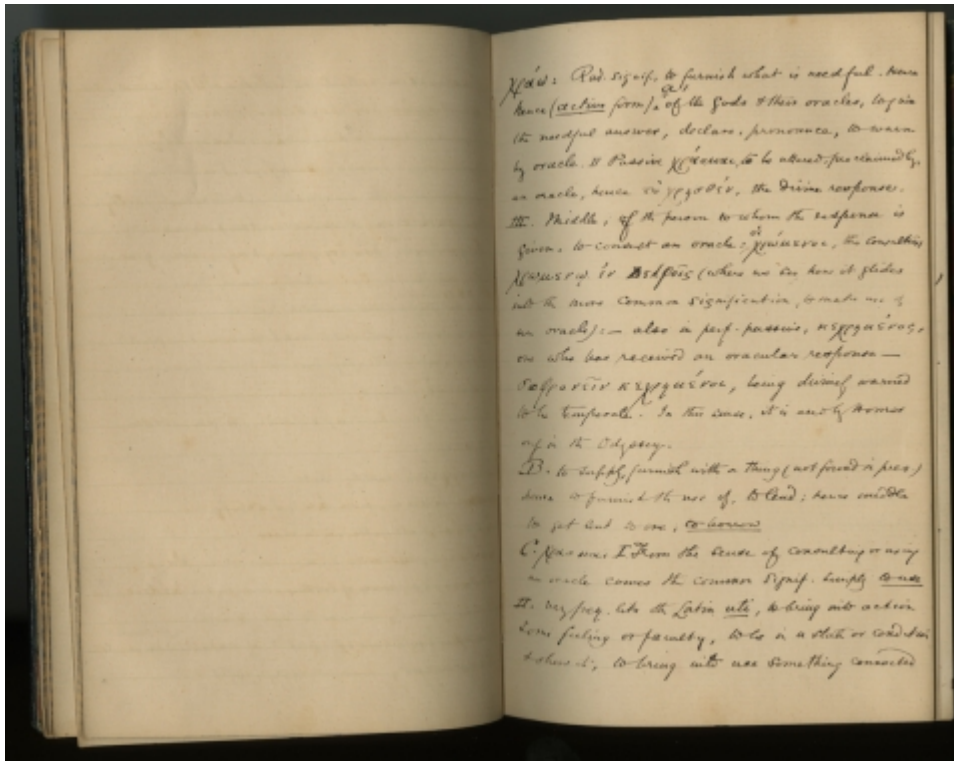 χράω: Rad. signif. to furnish what is needful. Hence
hence (active form) A, of the gods & their oracles, to give
the needful answer, declare, pronounce, to warn
by oracle. II Passive χράομαι, to be uttered, proclaimed by
an oracle, hence τὸ χρησθέν, the divine response.
III. Middle, of the person to whom the response is
given, to consult an oracle: οἱ χρώμενοι, the consulting
χρωμένῳ ἐν Δελφοῖς (where we see how it glides
into the more common signification, to make use of
an oracle):— also in perf. passive, κεχρημένος,
one who has received an oracular response—
σωφρονεῖν κεχρημένοι, being divinely warned
to be temperate. In this sense, it is used by Homer
only in the Odyssey.
B. to supply, furnish with a thing (not found in pres.)
hence to furnish the use of, to lend: hence middle
to get lent to one, to borrow
C. χράομαι I From the sense of consulting or using
an oracle comes the common signif. simply to use
II. very freq. like the Latin uti, to bring into action
some feeling or faculty, to be in a state or condition
& show it, to bring into use something connected